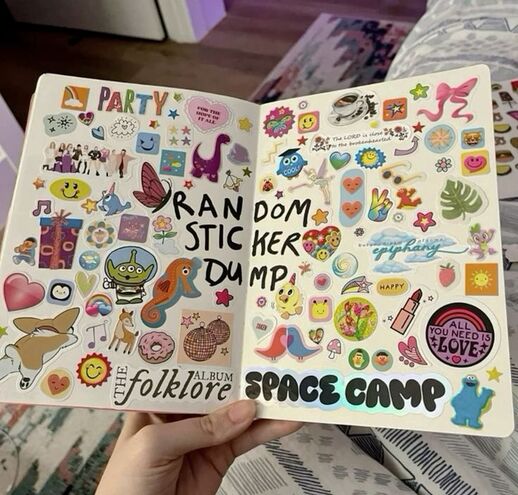 PARTY
FOR THE
HOPE OF
IT ALL
The LORD is close
to the brokenhearted
COOL
RANDOM
STICKER
DUMP
epiphany
HAPPY
ALL
YOU NEED IS
LOVE
THE folklore ALBUM
SPACE CAMP